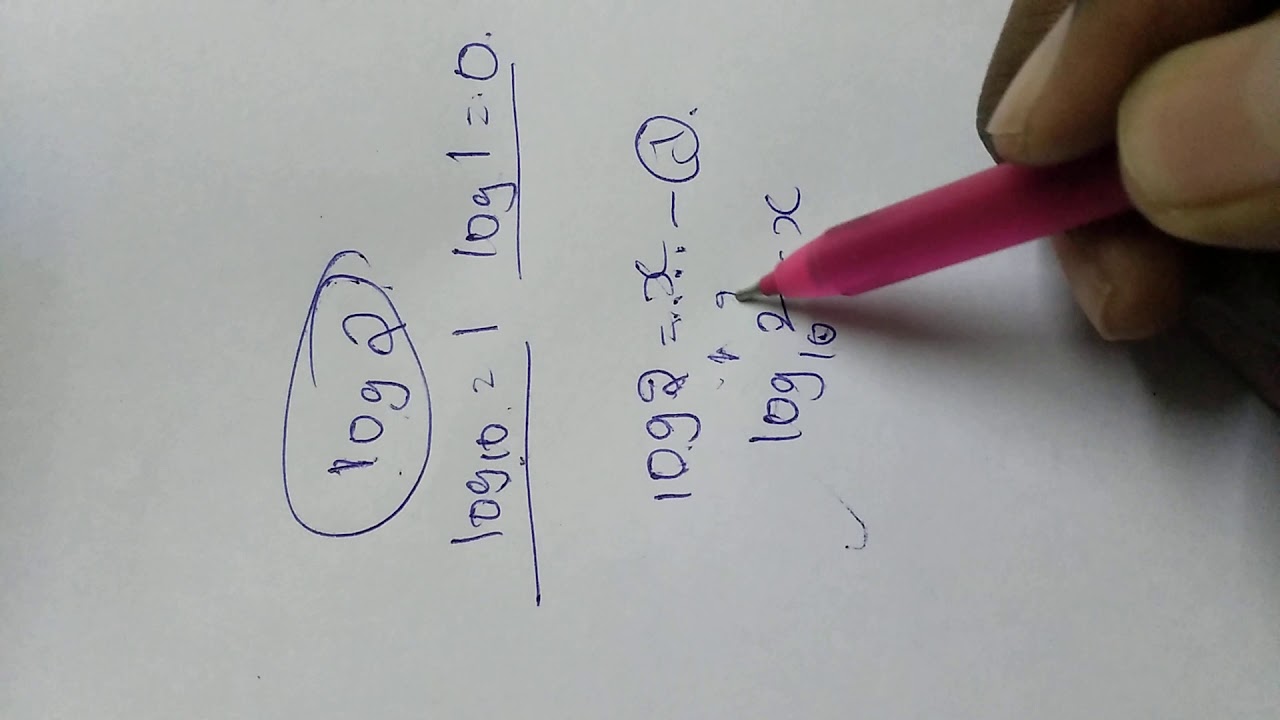 log 2
log10 = 1 log 1 = 0.
log 2 = x. - ①.
log10 2 = x